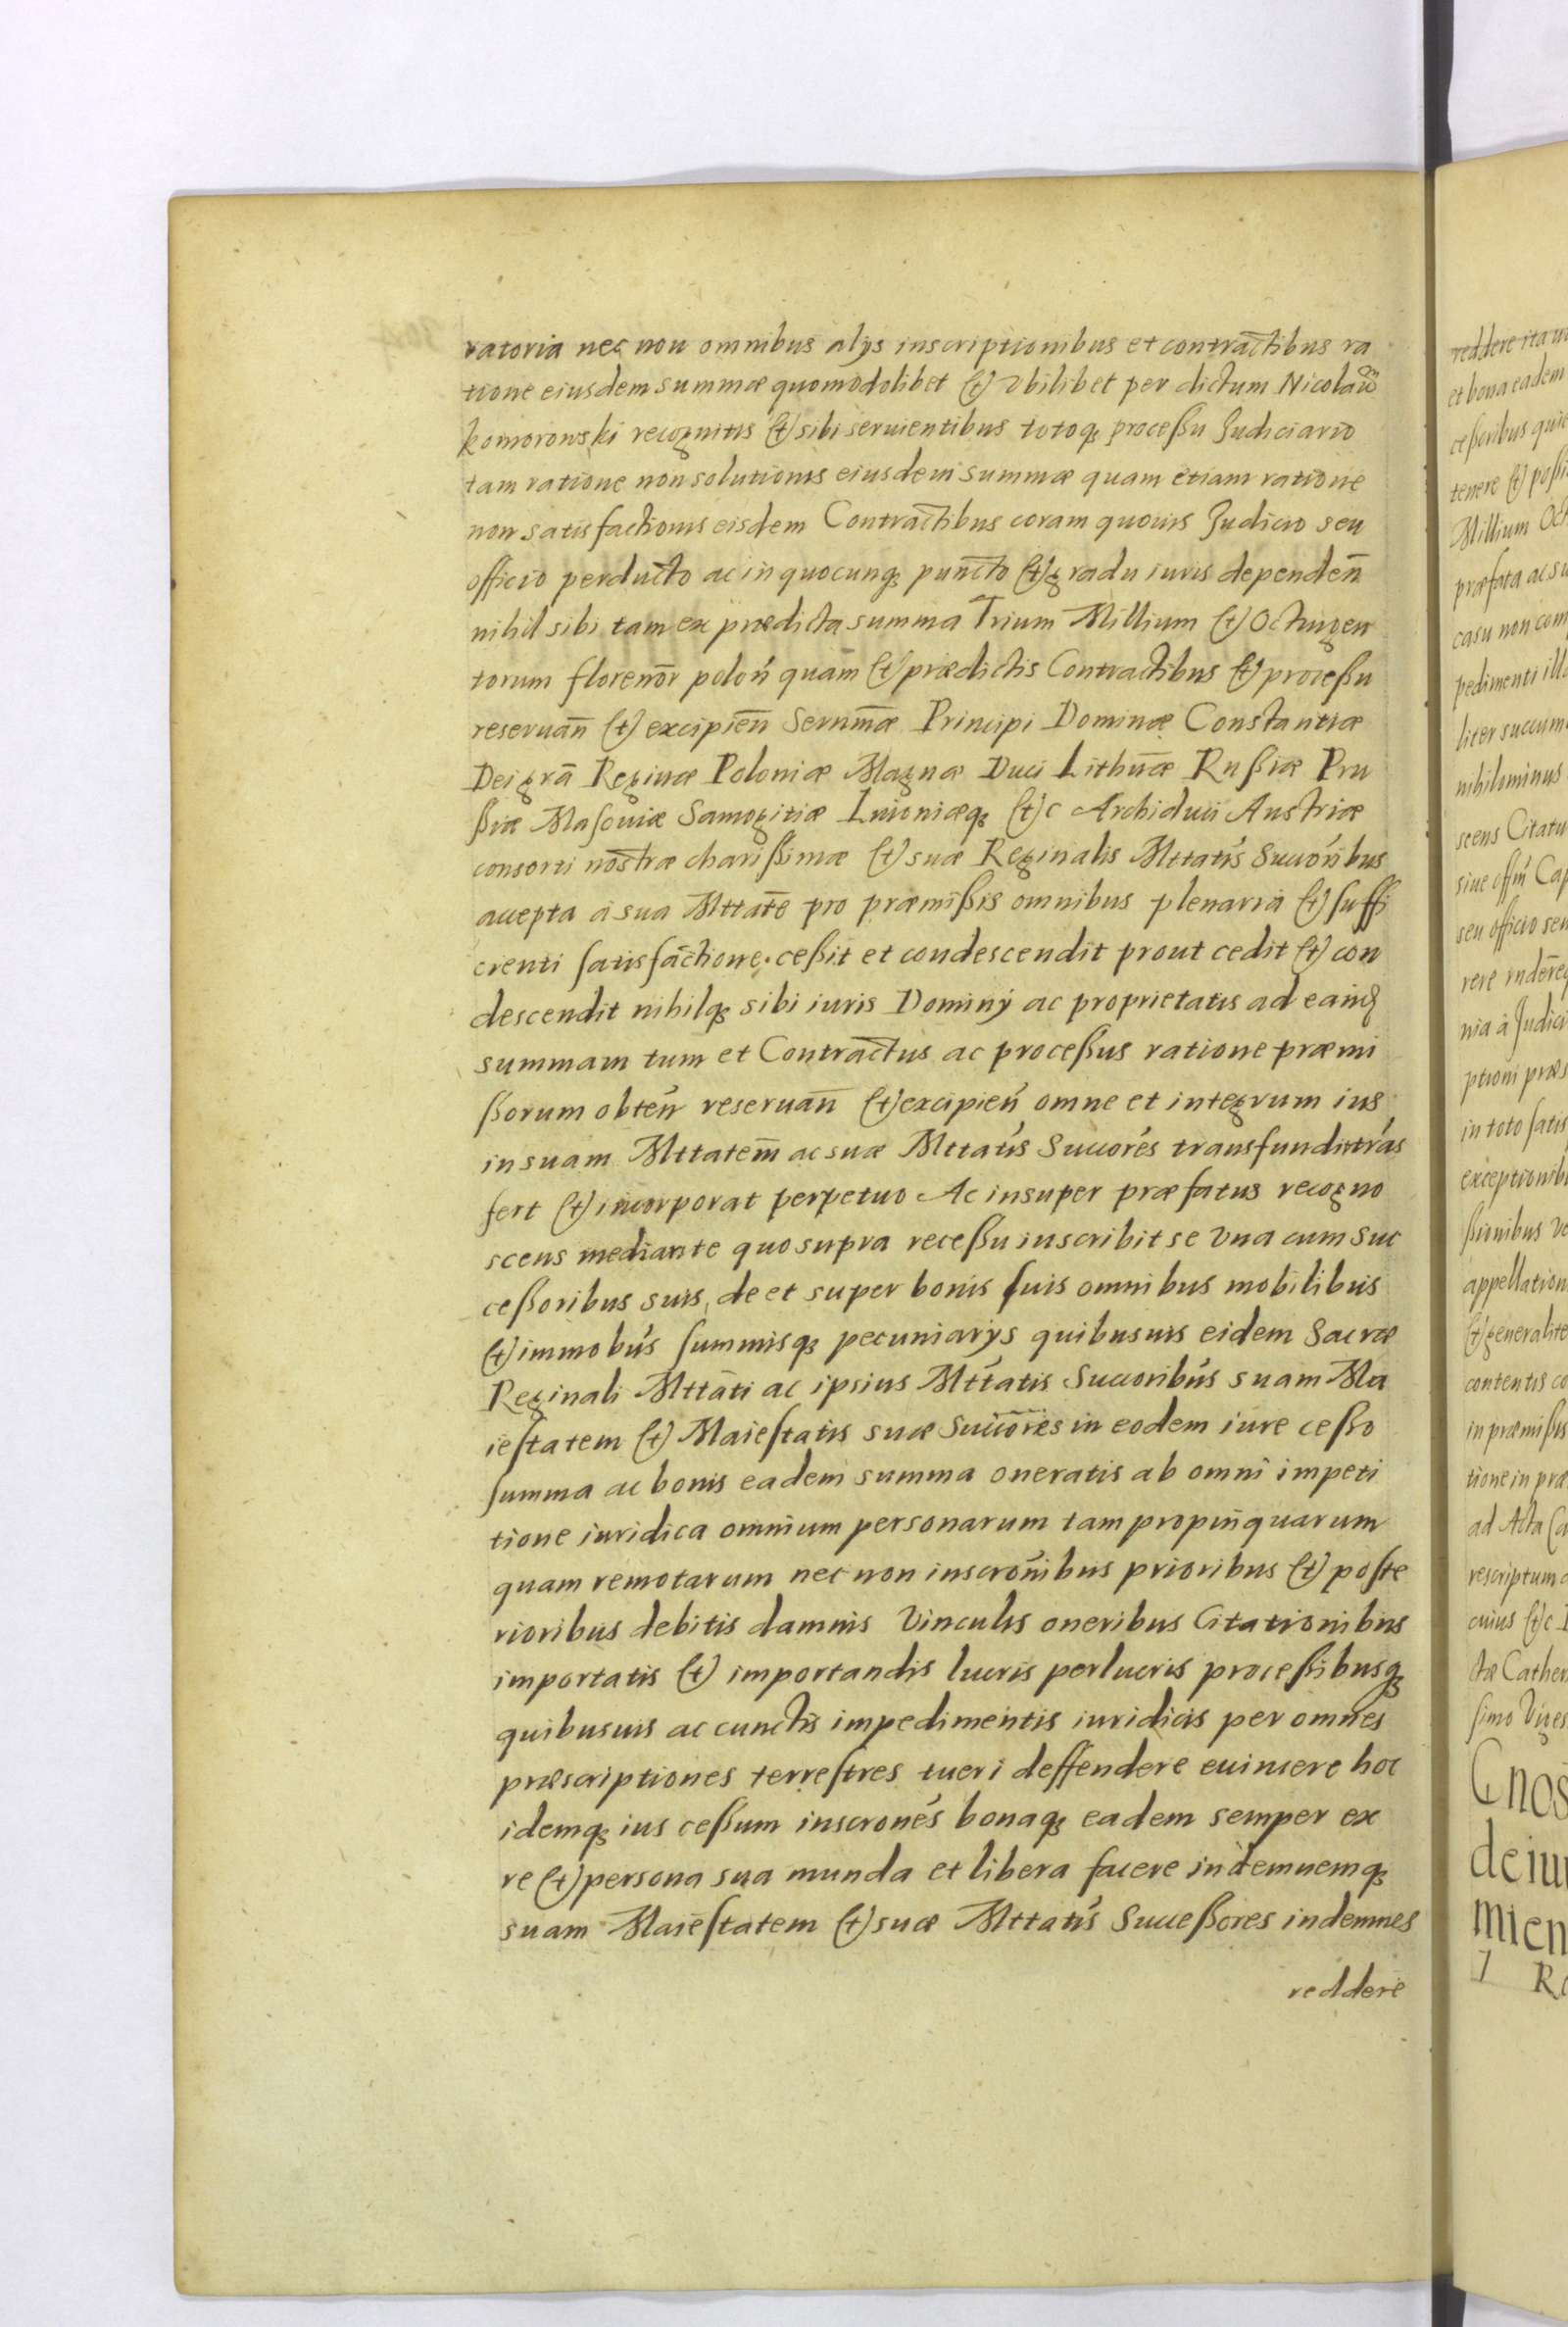 ratoria nec non omnibus alÿs inscriptionibus et contractibus ra
tione eiusdem summæ quomodolibet et Vbilibet per dictum Nicolaū
komorowski recognitis et sibi seruientibus totoq₃ proceßu Judiciario
tam ratione non solutionis eiusdem summæ quam etiam ratione
non satisfactionis eisdem Contractibus coram quouis Judicio seu
officio perducto ac in quocunq₃ puncto et gradu iuris dependen̄
nihil sibi tam ex prædicta summa Trium Millium et Octingen
torum florenor̄ polon̄ quam et prædictis Contractibus et proceßu
reseruan̄ et excipien̄ Sernm̄æ Principi Dominæ Constantiæ
Dei grā Reginæ Poloniæ Magnæ Duci Lithūæ Rußiæ Pru
ßiæ Masouiæ Samogitiæ Liuoniæq₃ etc Archiducii Austriæ
consorti nostræ charißimæ et suæ Reginalis Mttatīs Succōribus
accepta a sua Mttatē pro præmißis omnibus plenaria et suffi
cienti satisfactione. ceßit et condescendit prout cedit et con
descendit nihilq₃ sibi iuris Dominÿ ac proprietatis ad eand̄
summam tum et Contractus ac proceßus ratione præmi
ßorum obten̄ reseruan̄ et excipien̄ omne et integrum ius
in suam Mttatem̄ ac suæ Mttatīs Succorēs transfundit trās
fert et incorporat perpetuo Ac insuper præfatus recogno
scens mediante quo supra receßu inscribit se Vna cum suc
ceßoribus suis, de et super bonis suis omnibus mobilibus
et immobūs summisq₃ pecuniarÿs quibusuis eidem Sacræ
Reginali Mttāti ac ipsius Mttātis Succoribūs suam Ma
iestatem et Maiestatis suæ Succōres in eodem iure ceßo
summa ac bonis eadem summa oneratis ab omni impeti
tione iuridica omnium personarum tam propinquarum
quam remotarum nec non inscrōnibus prioribus et poste
rioribus debitis damnis Vinculis oneribus Citationibus
importatis et importandis lucris perlucris proceßibusq₃
quibusuis ac cunctis impedimentis iuridicis per omnes
præscriptiones terrestres tueri deffendere euincere hoc
idemq₃ ius ceßum inscronēs bonaq₃ eadem semper ex
re et persona sua munda et libera facere indemnemq₃
suam Maiestatem et suæ Mttatīs Succeßores indemnes
reddere
reddere ita
et bona eadem
ceßoribus
tenere et
Millium
præfata ac
casu non
pedimenti
liter
nihilominus
scens
siue
seu officio seu
rere
nia à
ptioni
in toto satis
exceptionib
ßionibus
appellation
et generalite
contentis
in præmißis
tione in præ
ad Acta
rescriptum
cuius etc
ctæ Cather
simo Viges
C nos
de iu
mien